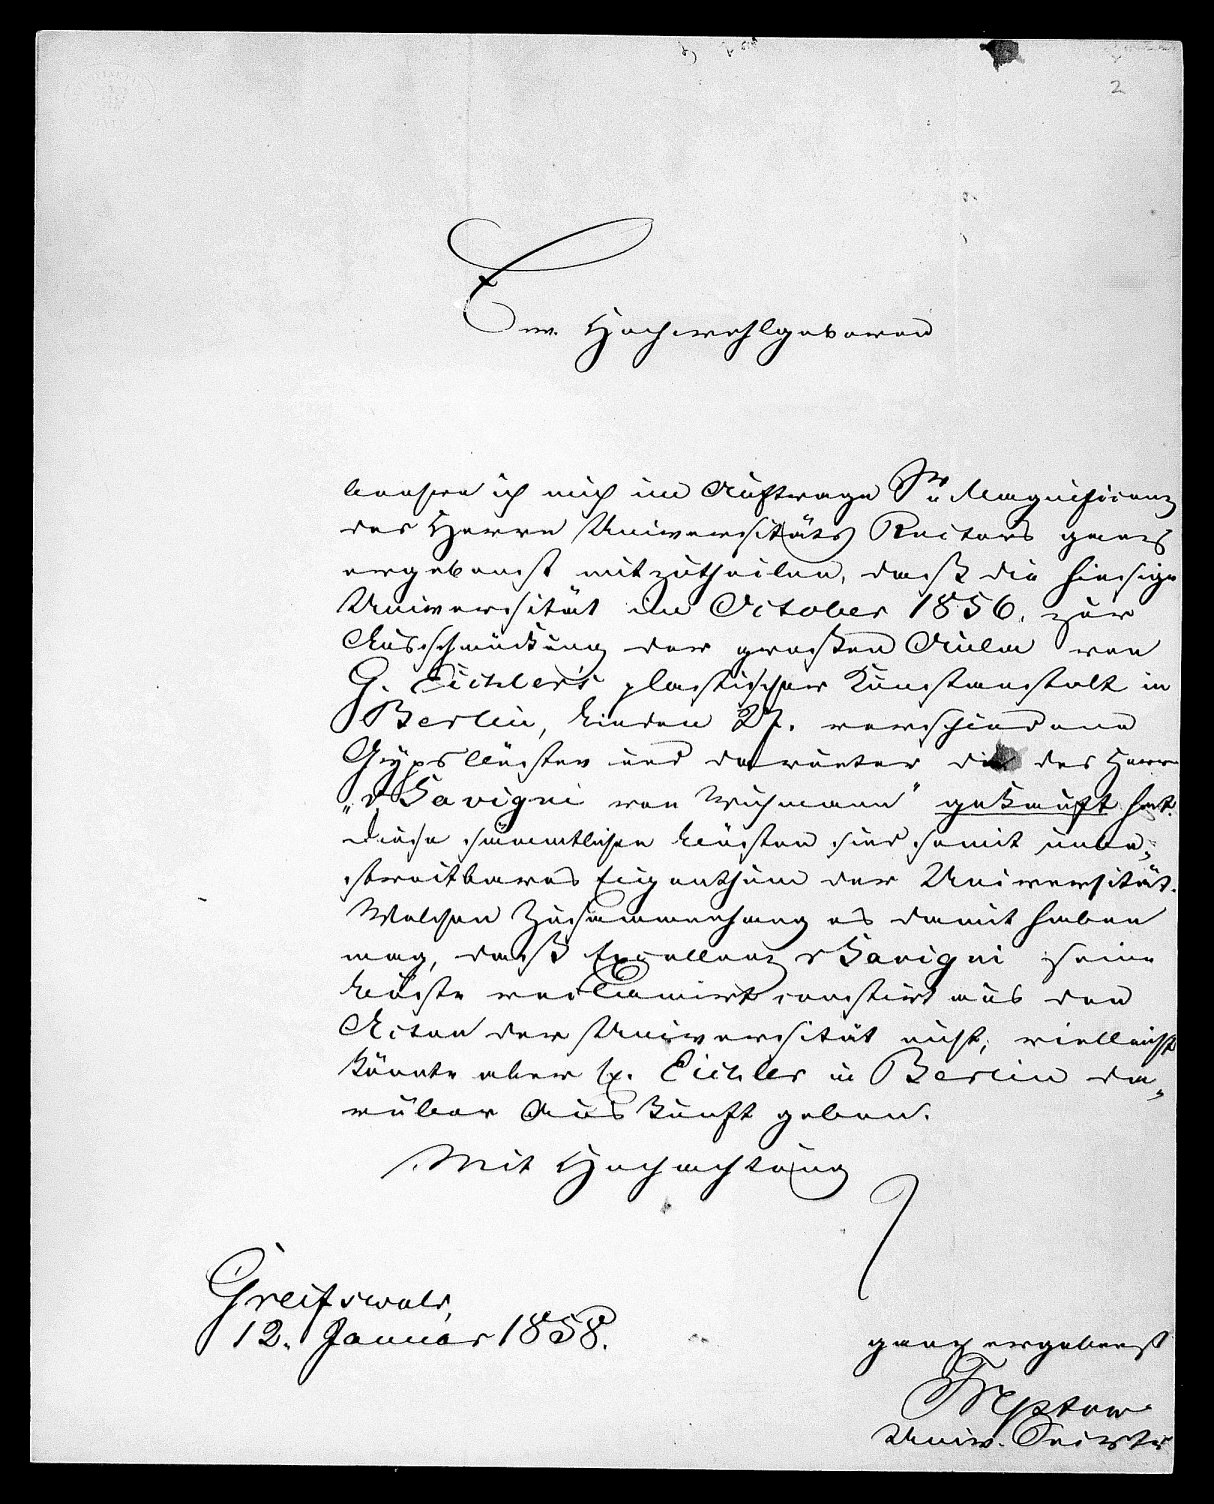 2
Ew. Hochwohlgeboren
beehre ich mich im Auftrage Sr. Magnificenz
des Herrn Universitäts Rectors ganz
ergebenst mitzutheilen, daß die hiesige
Universität im October 1856. zur
Ausschmückung der großen Aula von
G. Eichler's plastischer Kunstanstalt in
Berlin, 27. verschiedene
Gyps Büsten und darunter die des Herrn
„v Savigni von Wichmann" gekauft hat.
Diese sämmtlichen Büsten sind somit unbe„
streitbares Eigenthum der Universität.
Welchen Zusammenhang es damit haben
mag, daß Excellenz v Savigni seine
Büste reclamirt constirt aus den
Acten der Universität nicht, vielleicht
könnte aber H. Eichler in Berlin da„
rüber Auskunft geben.
Mit Hochachtung
Greifswald,
12. Januar 1858.
ganz ergebenst
Treptow
Univ. Secretr